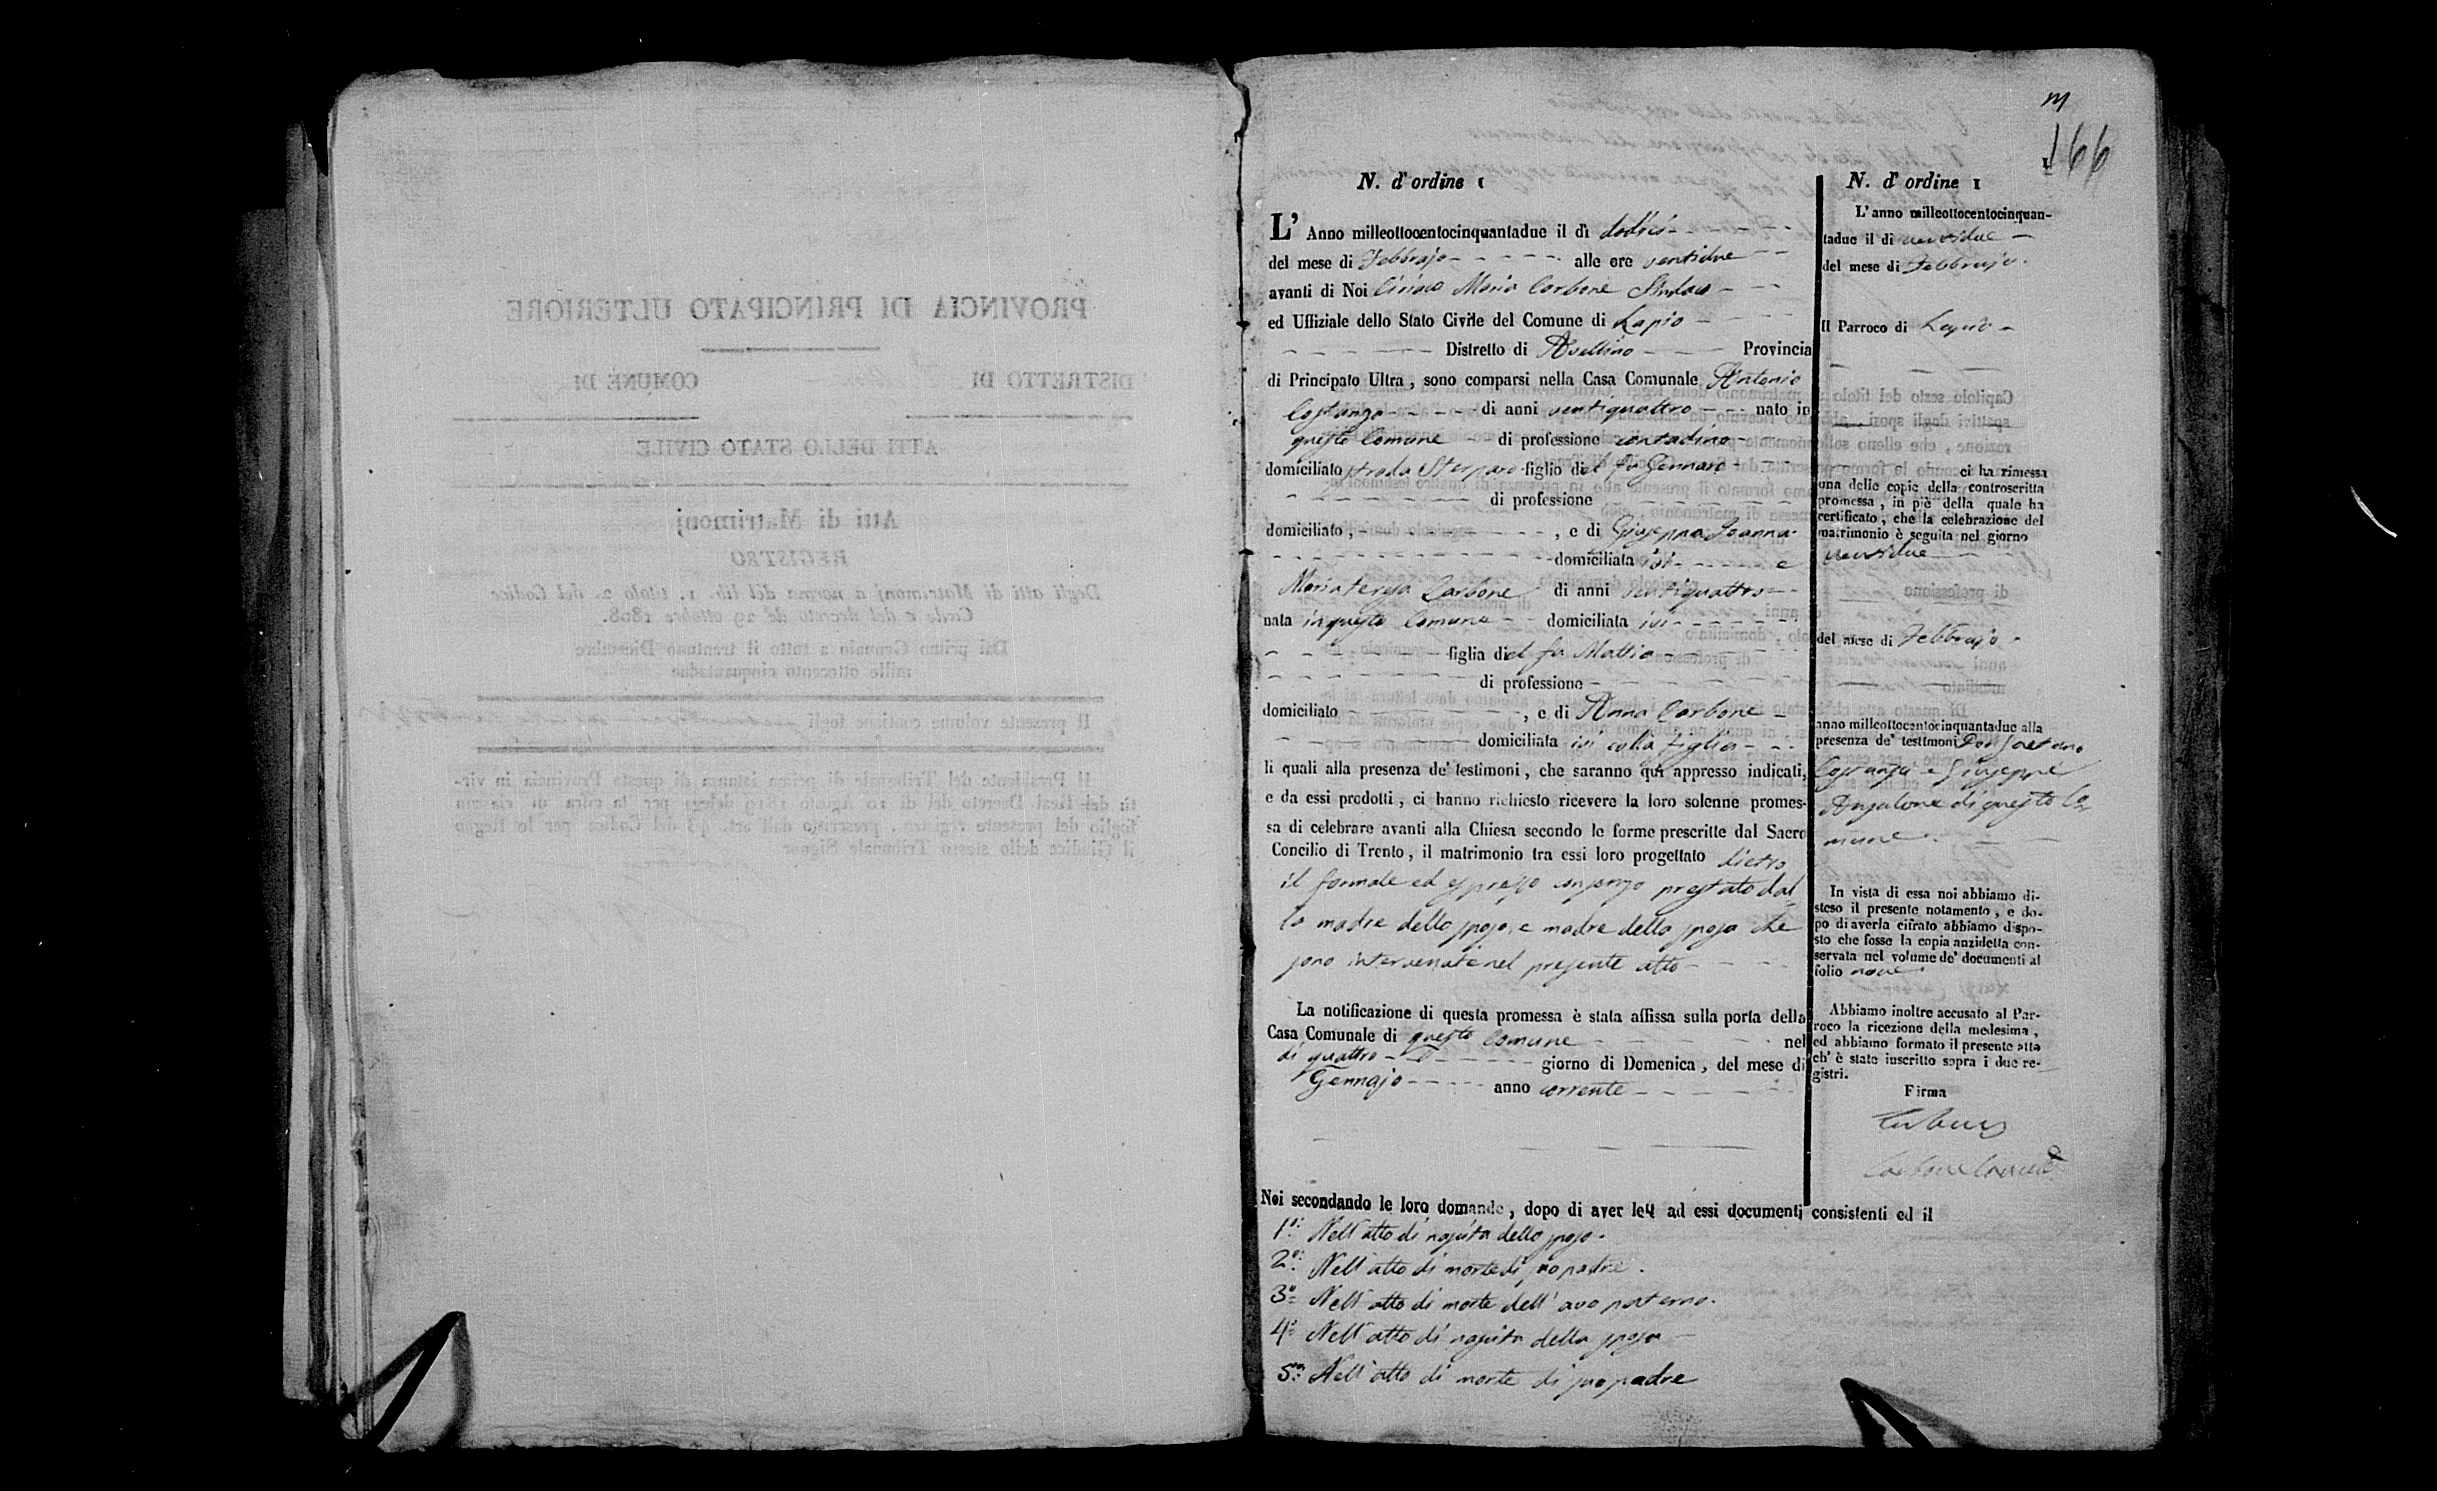 m
166
1
N. d'ordine 1
L' Anno milleottocentocinquantadue il dì dodici
del mese di Febbrajo alle ore ventidue
avanti di Noi Ciriaco Maria Carbone Sindaco
ed Uffiziale dello Stato Civile del Comune di Lapio
Distretto di Avellino Provincia
di Principato Ultra, sono comparsi nella Casa Comunale Antonio
Costanza di anni ventiquattro nato in
questo Comune di professione contadino
domiciliato strada figlio del fu Gennaro
di professione
domiciliato, , e di Giuseppa Joanna
domiciliata ivi e
Maria Teresa Carbone di anni ventiquattro
nata in questo Comune domiciliata ivi
figlia del fu Mattia
di professione
domiciliato , e di Anna Carbone
domiciliata ivi colla figlia
li quali alla presenza de' testimoni, che saranno qui appresso indicati,
e da essi prodotti, ci hanno richiesto ricevere la loro solenne promes-
sa di celebrare avanti alla Chiesa secondo le forme prescritte dal Sacro
Concilio di Trento, il matrimonio tra essi loro progettato dietro
il formale ed espresso consenso prestato dal
la madre dello sposo, e madre della sposa che
sono intervenute nel presente atto
La notificazione di questa promessa è stata affissa sulla porta della
Casa Comunale di questo Comune nel
dì quattro giorno di Domenica, del mese di
Gennajo anno corrente
Noi secondando le loro domande, dopo di aver letti ad essi documenti consistenti ed il
1°: Nell'atto di nascita dello sposo.
2°: Nell'atto di morte di suo padre.
3°: Nell'atto di morte dell'avo paterno.
4°: Nell'atto di nascita della sposa
5°: Nell'atto di morte di suo padre
N. d'ordine 1
L'anno milleottocentocinquan-
tadue il di ventidue
del mese di Febbrajo.
Il Parroco di Lapio
ci ha rimessa
una delle copie della controscritta
promessa, in piè della quale ha
certificato, che la celebrazione del
matrimonio è seguita nel giorno
ventidue
del mese di Febbrajo
anno milleottocentocinquantadue alla
presenza de' testimoni Don Gaetano
Costanza e Giuseppe
Anzalone di questo Co-
mune.
In vista di essa noi abbiamo di-
steso il presente notamento, e do-
po di averla cifrato abbiamo dispo-
sto che fosse la copia anzidetta con-
servata nel volume de' documenti al
folio nove
Abbiamo inoltre accusato al Par-
roco la ricezione della medesima,
ed abbiamo formato il presente atto
ch' è stato inscritto sopra i due re-
gistri.
Firma
PROVINCIA DI PRINCIPATO ULTERIORE
DISTRETTO DI COMUNE DI
ATTI DELLO STATO CIVILE
Atti di Matrimonj
REGISTRO
Degli atti di Matrimonj a norma del lib. 1. titolo 2. del Codice
Civile e del decreto de' 29 ottobre 1808.
Dal primo Gennaio a tutto il trentuno Dicembre
mille ottocento cinquantadue
Il presente volume contiene fogli
Il Presidente del Tribunale di prima istanza di questa Provincia in vir-
tù del Real Decreto del dì 10 Agosto 1819 delega per la cifra di ciascun
foglio del presente registro, prescritto dall'art. 43 del Codice per lo Regno
il Giudice dello stesso Tribunale Signor